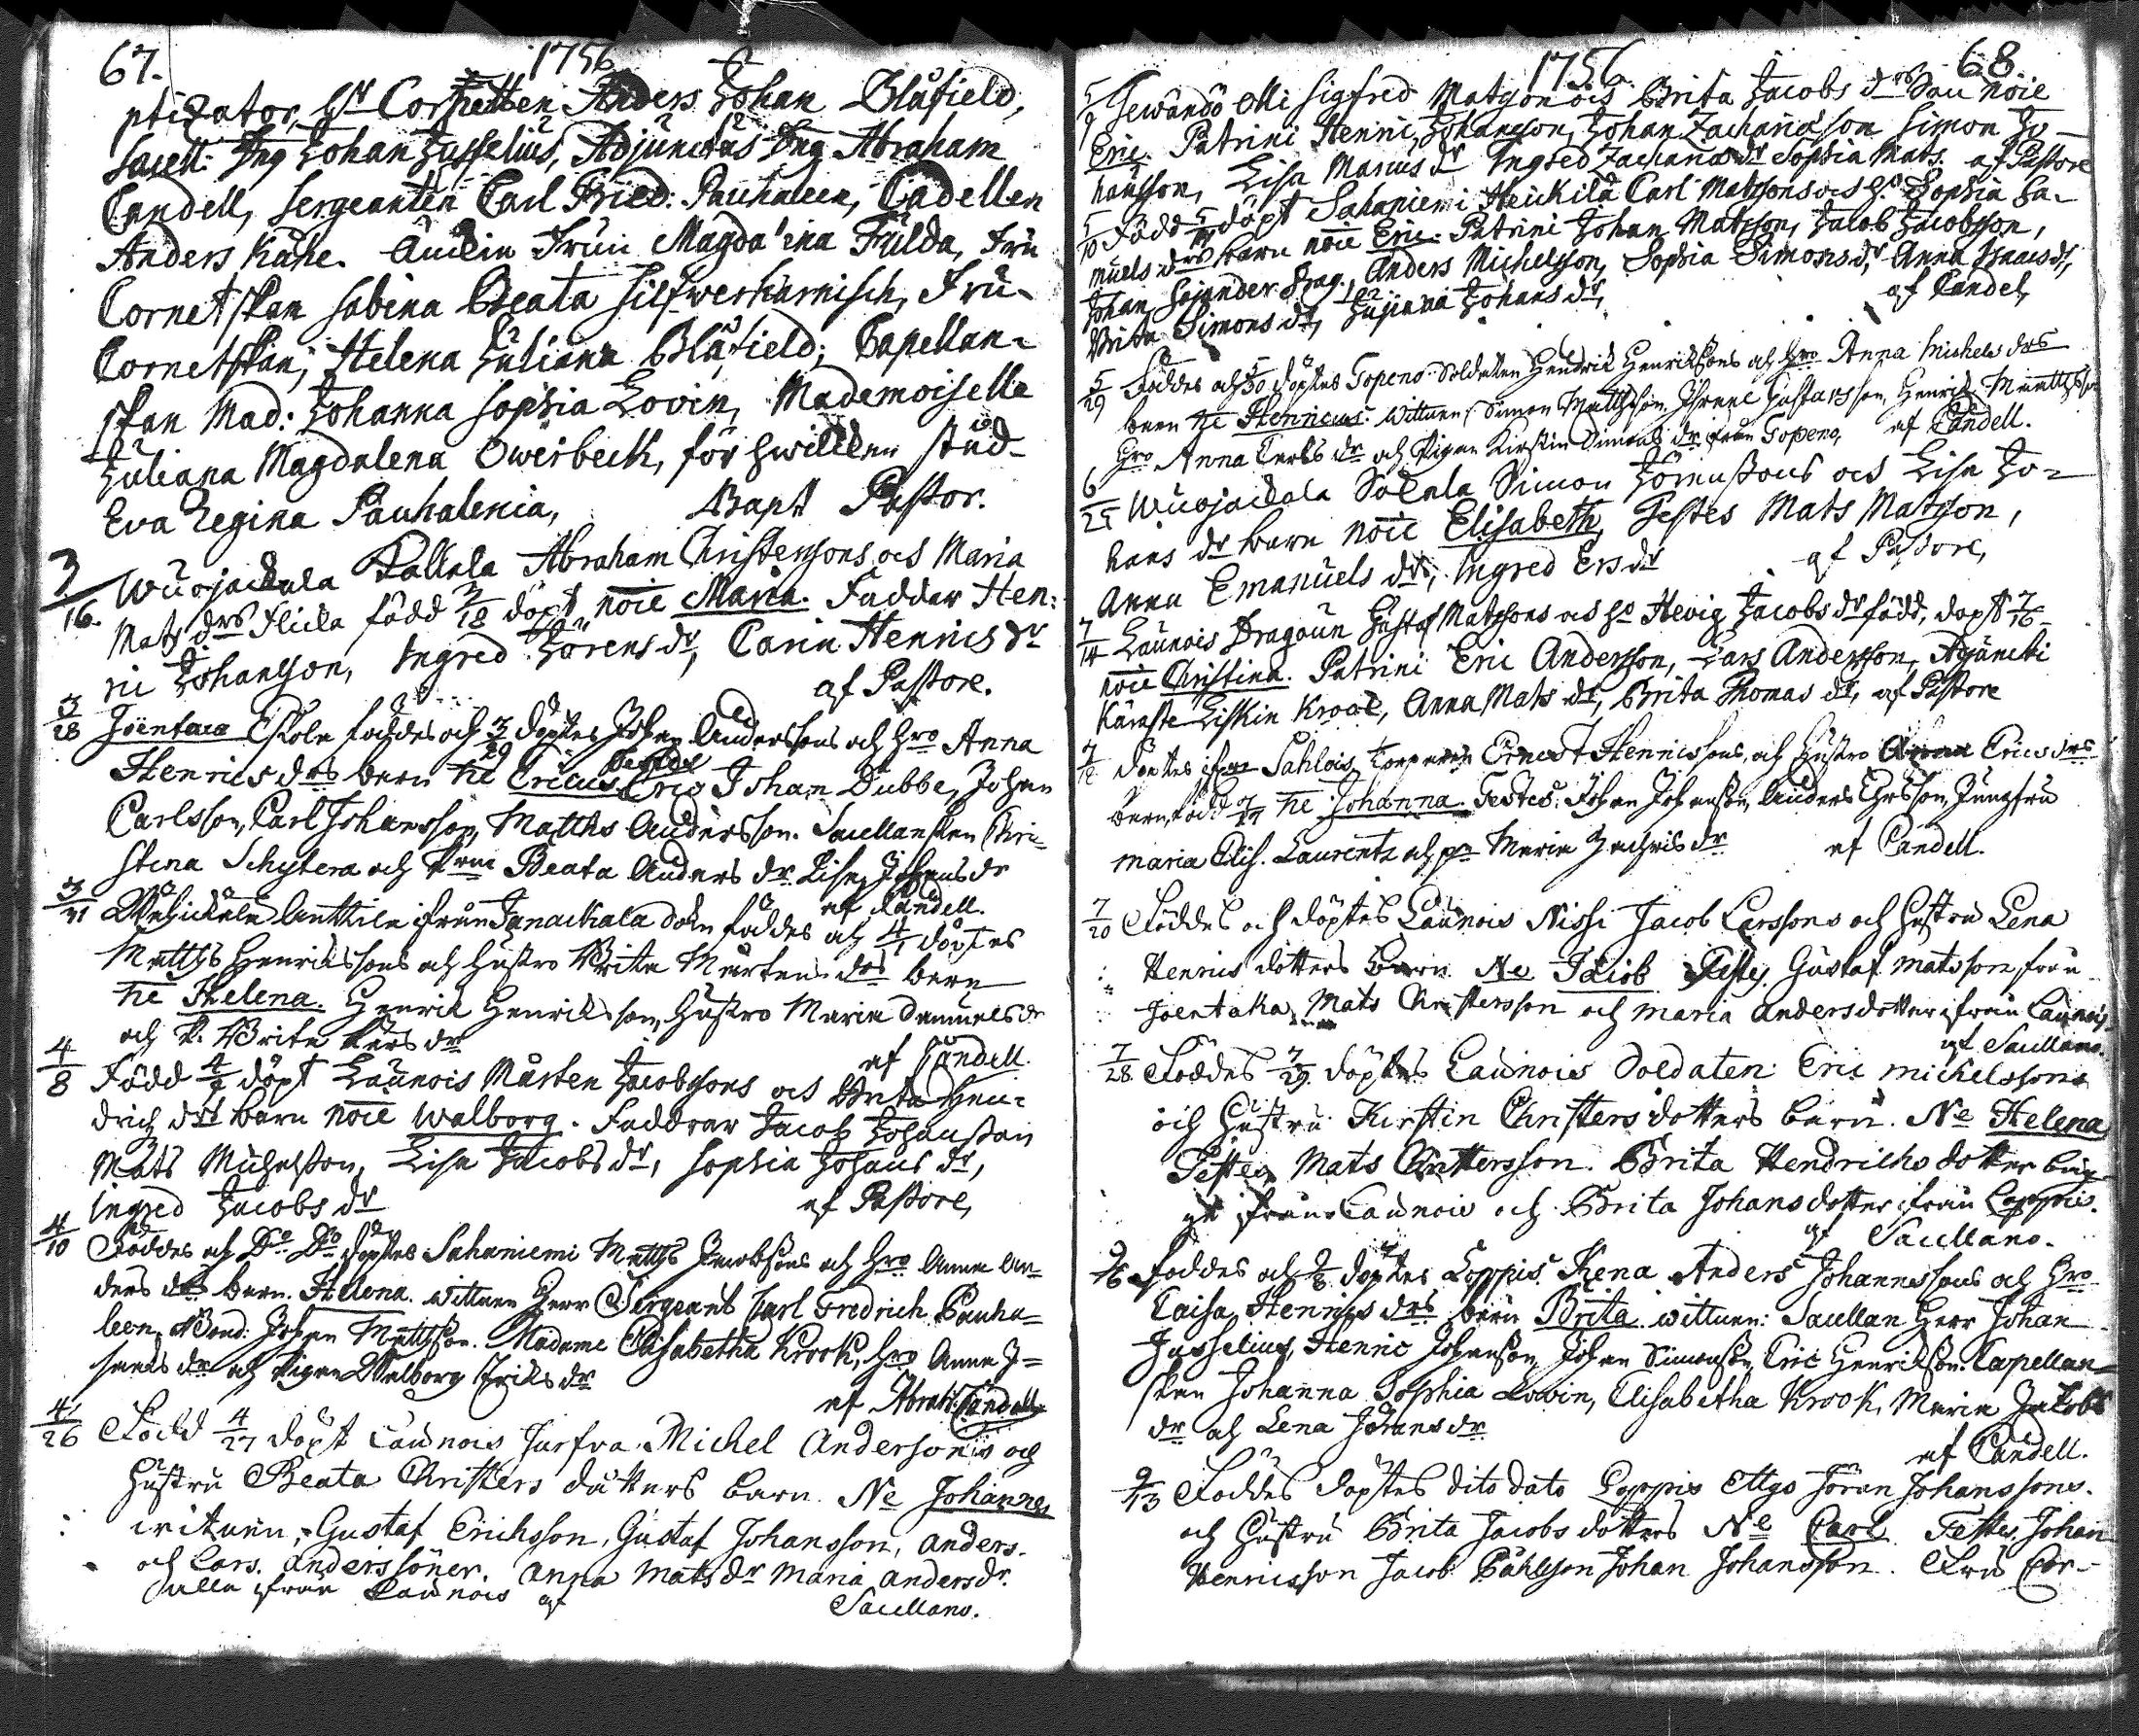 67.
1756
ptizator, Hr Cornetten Anders Johan Blåfield,
Sacell: Dng Johan Jusselius, Adjunctus Dng Abraham
Candell, Sergeanten Carl Fried: Pauhaleen, Cadetten
Anders Kahe. Qvin Fruu Magdalina Fulda, Fru
Cornetskan Sabina Beata Silfwerharnisch, Fru
Cornetskan, Helena Juliana Blåfield, Capellan-
skan Mad: Johanna Sophia Lovin, Mademoiselle
Juliana Magdalena Owerbeck, för hwilken stod
Eva Regina Pauhalenia, Bapt Pastor.
3/16. Wuojackala Pallala Abraham Christerssons och Maria
Mats drs flicka född 3/18 döpt, noie Maria. Faddar Hen:
ric Johansson, Ingred Jörens dr, Carin Henrics dr
af Pastore.
3/28 Joentaca Skole föddes och 3/29 döptes Johan Anderssons och Hro Anna
Henrics drs barn Ne Ericus. Eric Johan Dubbe, Johan
Carlsson, Carl Johansson, Matths Andersson. Sacellanskan Chri-
stina Schytera och Beata Anders dr. Lisa Johans dr
af Candell.
3/31 Anttila från Janackala föddes och 4/1 döptes
Matths Henrikssons och hustro Brita Mårtens drs barn
Ne Helena. Henrik Henriksson, hustro Maria Samuels dr
och P. Brita Pers dr
af Candell.
4/8 Född 4/9 döpt Launois Mårten Jacobssons och Brita Hen-
drich drs barn noie Walborg. Faddrar Jacob Johansson
Mats Michelsson, Lisa Jacobs dr, Sophia Johans dr,
Ingred Jacobs dr
af Pastore,
4/10 Föddes och Do Do döptes Sahaniemi Matths Jacobssons och Hro Anna An-
ders drs barn. Helena. Wittnen Herr Sergeant Carl Fredrich Pauha-
leen, Bond: Johan Mattsson. Madame Elisabetha Krook, Hro Anna J-
saacs dr och Pigan Walborg Eriks dr
af Abrah: Candell
4/26 Född 4/27 döpt Launois Jurfva Michel Anderssons och
hustru Beata Christers dotters barn. Ne Johannes
witnen, Gustaf Erichsson, Gustaf Johansson, Anders
och Lars. anderssöner. Anna Mats dr Maria anders dr.
alla ifrån Launois af
Sacellano.
1756
68
5/9 Sewändö Olli Sigfred Matssons och Brita Jacobs drs Son noie
Eric. Patrini Henric Johansson, Johan Zachariæson Simon Jo-
hansson, Lisa Marcus dr Ingred Zachariæ dr Sophia Mats. af Pastore
5/10 Född döpt Sahaniemi Heickilä Carl Matssons och Ho Sophia Sa-
muels drs barn noie Eric. Patrini Johan Matsson, Jacob Jacobsson,
Johan Sojander Drag. Anders Michelsson, Sophia Simons dr, Anna Isaacs dr,
Brita Simons dr, Susanna Johans dr,
af Candel,
5/29 Föddes och 5/30 döptes Topeno Soldaten Hendrik Henrikssons och Hro Anna Michels drs
barn Ne Henricus. Wittnen Simon Matthson Johan Gustavsson, Henrik Matthsson
Hro Anna Carls dr och Pigan Kirstin Simons dr från Topeno, af Candell.
6/25 Wuojackala Sokala Simon Jörenssons och Lisa Jo-
hans dr barn noie Elisabeth, Testes Mats Matsson,
Anna Emanuels dr, Ingred Ers dr
af Pastore,
7/14 Launois Dragoun Gustaf Matssons och Ho Hevig Jacobs dr född, döpt 7/16
noie Christina. Patrini Eric Andersson, Lars Andersson, Adjuncti
Käraste Liskin Krook, Anna Mats dr, Brita Thomas dr, af Pastore
döptes ifrån Sahlois Torparen Ernest Henricssons, och Hustro Anna Erics drs
barn, född Ne Johanna. Testes: Johan Johansson, Anders Ersson, Jungfru
Maria Elis. Laurentz och Maria Zachris dr
af Candell.
7/20 Föddes och döptes Launois Nissi Jacob Larssons och Hustru Lena
Henrics dotters Barn Ne Jacob Testes, Gustaf Matsson från
Joentaka, Mats Christersson och Maria Andersdotter från Launois
af Sacellano.
7/28 Föddes 7/29 döptes Launois Soldaten Eric Michelssons
och hustru Kirstin Christers dotters barn. Ne Helena
Testes Mats Christersson. Brita Hendrichs dotter
ifrån Launois och Brita Johans dotter ifrån Loppis.
af Sacellano.
9/6 Föddes och 9/8 döptes Loppis Kena Anders Johanssons och Hro
Caisa Henrics drs barn Brita. Wittnen: Sacellan Herr Johan
Jusselius, Henric Johansson, Johan Simonsson, Eric Henriksson. Capellan-
skan Johanna Sophia Lowin, Elisabetha Krook, Maria Jakobs
dr och Lena Johans dr
af Candell.
9/13 Föddes döptes dito dato Loppis Ettys Jöran Johanssons.
och Hustru Brita Jacobs dotters Ne Carl Testes, Johan
Henricsson Jacob Påhlsson Johan Johansson. Fru Cor-